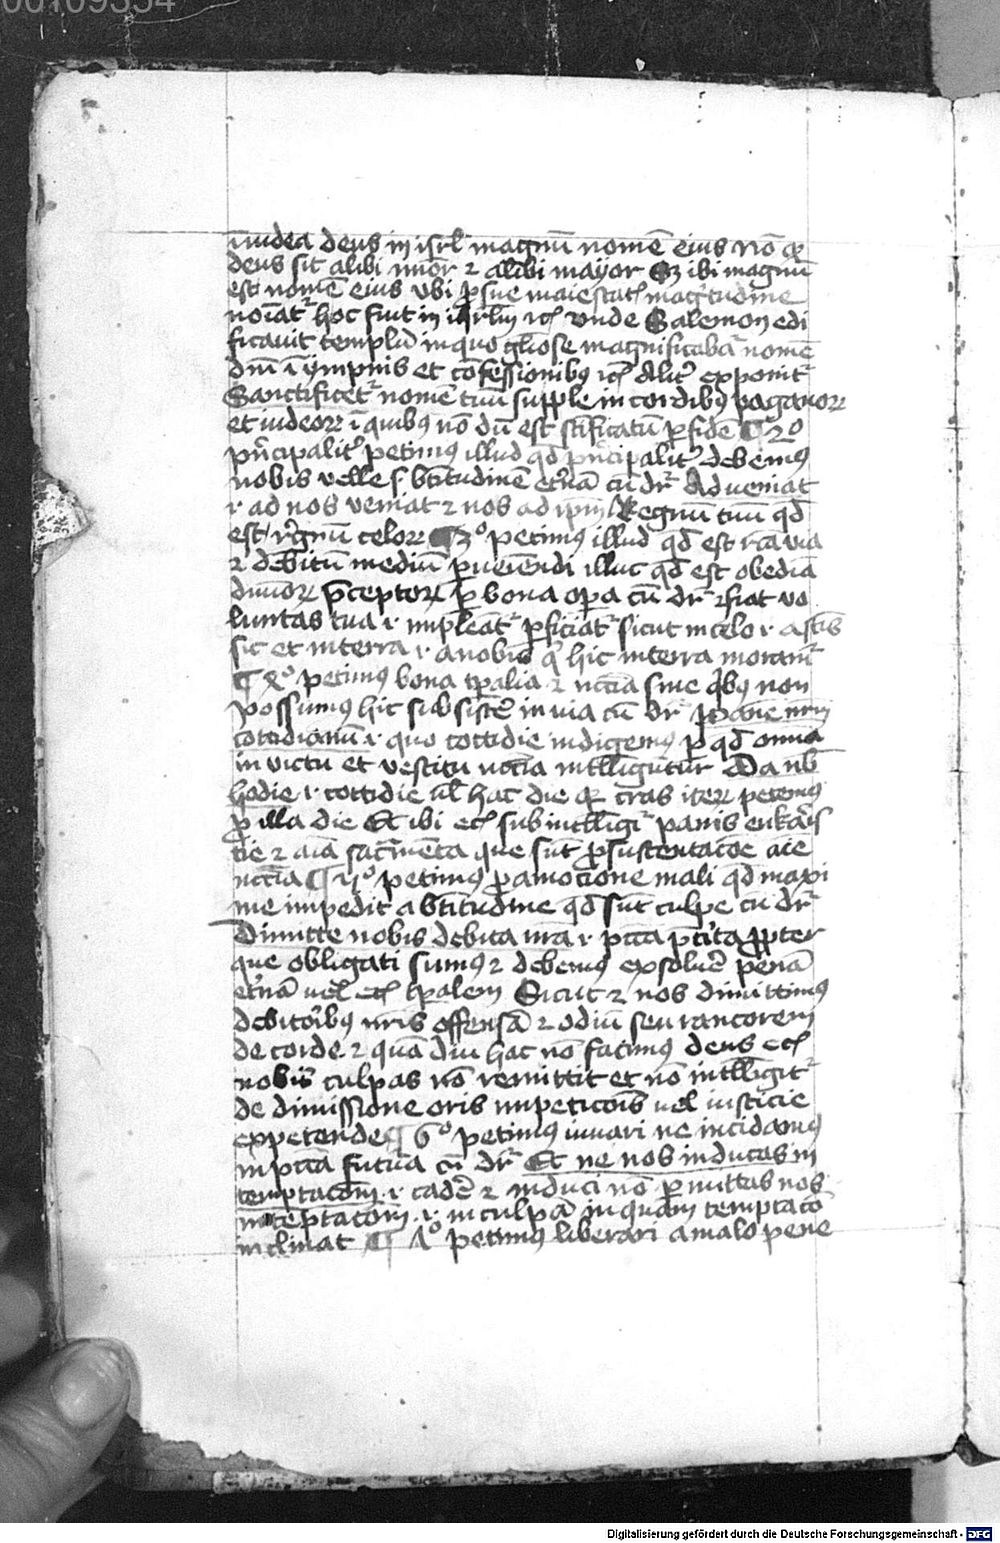 00109334
iudea deus in isrl magnū nomē eius nō qr
deus sit alibi mīor et alibi mayor sz ibi magnū
est nomē eius ubi p sue maiestatis magnitudine
noiat' hoc fuit in isrlm rc̄ unde Salemon edi
ficauit templū in quo gliose magnificabat' nomē
dnī ī ympnis et confessionibus rc̄ Alit' exponit'
Sanctificet' nomē tuū supple in cordibus paganorꝝ
et iudeorꝝ ī quibus nō dū est scificatū p fidē ¶ 2º
pⁱncipalit' petimus illud qd pⁱncipalit' debemus
nobis velle s. btitudinē etnā cū dr̄ Adueniat
.i. ad nos veniat et nos ad ipm Regnū tuū qd
est regnū celorꝝ ¶ 3º petimus illud qd est rcā via
et debitū mediū pueniendi illuc qd est obediā
diuinorꝝ p̄ceptorꝝ p bona opa cū dr̄ fiat vo
luntas tua .i. impleat' pficiat' sicut in celo .i. a scīs
sic et in terra .i. a nobis qⁱ hic in terra moramr
¶ 4º petimus bona tpalia et nccīa sine qⁱbus non
possumus hic subsistē in via cū dr̄ panē nrm
cottidianū .i. quo cottidie indigemus p qd omnia
in victu et vestitu nccīa intelliguntur Da nb
hodie .i. cottidie ul hac die qr cras iterꝝ petemus
p illa die Et ibi ec̄ subintelligi' panis eukaris
tie et alia sacramenta que sūt p sustentacōe aīe
nccīa ¶ 5º petimus p amocione mali qd maxi
me impedit a btitudine qd sūt culpe cū dr̄
Dimitte nobis debita nrā .i. pccā ptⁱta ppter
que obligati sumus et debemus exsoluē penā
etnā uel ec̄ tpalem Sicut et nos dimittimus
debitoribus nrīs offensā et odiū seu rancorem
de corde et quā diu hac nō facimus deus ec̄
nobis culpas nō remittit et nō intelligit'
de dimissione oris impeticōis uel iusticie
expetende ¶ 6º petimus iuuari ne incidamus
in pccā futura cū dr̄ Et ne nos inducas in
temptacōm .i. cadē et induci nō pmittas nos
in teptacōm .i. in culpā in quam temptacō
inclinat ¶ 7º petimus liberari a malo pene
Digitalisierung gefördert durch die Deutsche Forschungsgemeinschaft - DFG